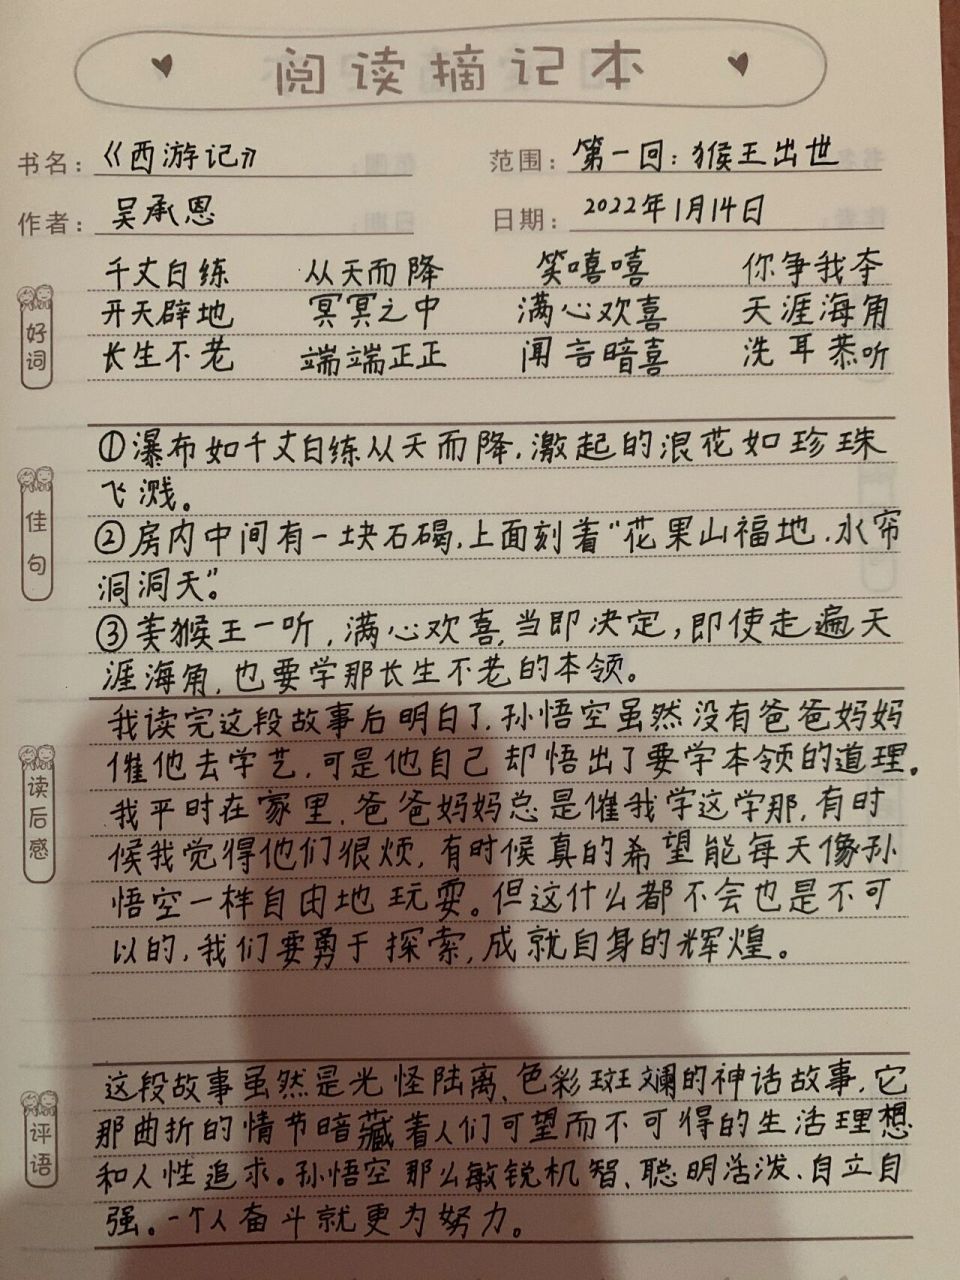 阅读摘记本
书名：《西游记》 范围：第一回：猴王出世
作者：吴承恩 日期：2022年1月14日
好词
千丈白练 从天而降 笑嘻嘻 你争我夺
开天辟地 冥冥之中 满心欢喜 天涯海角
长生不老 端端正正 闻言暗喜 洗耳恭听
佳句
①瀑布如千丈白练从天而降，激起的浪花如珍珠
飞溅。
②房内中间有一块石碣，上面刻着“花果山福地，水帘
洞洞天”。
③美猴王一听，满心欢喜，当即决定，即使走遍天
涯海角，也要学那长生不老的本领。
读后感
我读完这段故事后明白了，孙悟空虽然没有爸爸妈妈
催他去学艺，可是他自己却悟出了要学本领的道理。
我平时在家里，爸爸妈妈总是催我学这学那，有时
候我觉得他们很烦，有时候真的希望能每天像孙
悟空一样自由地玩耍。但这什么都不会也是不可
以的，我们要勇于探索，成就自身的辉煌。
评语
这段故事虽然是光怪陆离、色彩斑斓的神话故事，它
那曲折的情节暗藏着人们可望而不可得的生活理想
和人性追求。孙悟空那么敏锐机智、聪明活泼、自立自
强。一个人奋斗就更为努力。